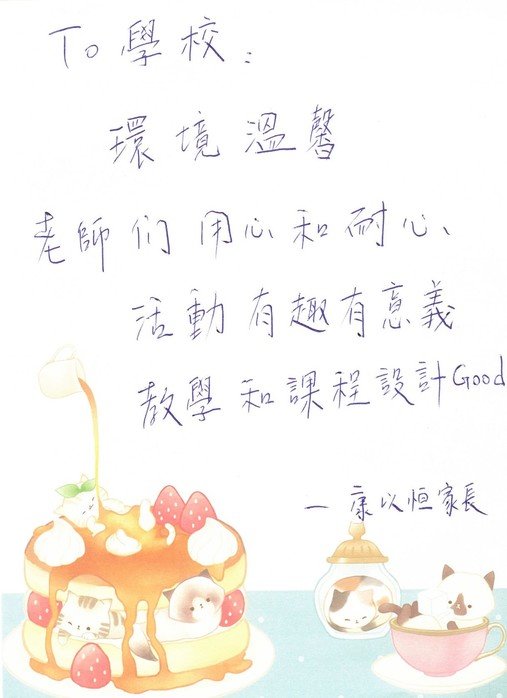 To 學校：
環境溫馨
老師们用心和耐心、
活動有趣有意義
教學和課程設計Good
— 康以恒家長